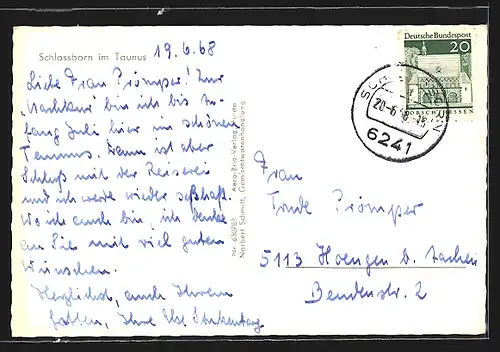 Schlossborn im Taunus 19.6.68
Liebe Frau Prömper! Zur
"Nachkur" bin ich bis An-
fang Juli hier im schönen
Taunus. Dann ist aber
Schluß mit der Reiserei
und ich werde wieder seßhaft.
Wo ich auch bin, ich denke
an Sie mit viel guten
Wünschen.
Herzlichst, auch Ihrem
Gatten, Ihre Else
Nr. 630/787 Aero-Bild-Verlag, Fulda
Norbert Schmitt, Gemischtwarenhandlung
Deutsche Bundespost
20
LORSCH/HESSEN
20.-6.
6241
Frau
Trude Prömper
5113 Hoengen b. Aachen
Bendenstr. 2